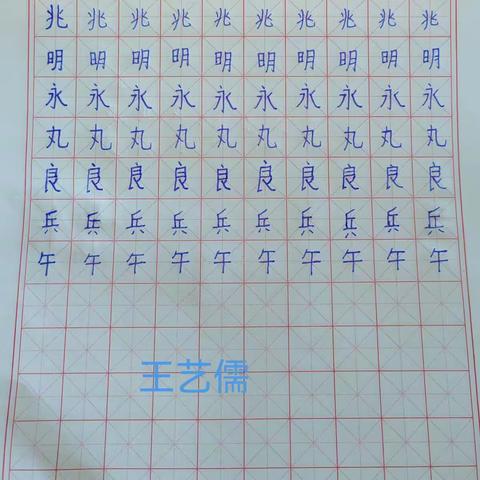 兆兆兆兆兆兆兆兆兆兆
明明明明明明明明明明
永永永永永永永永永永
丸丸丸丸丸丸丸丸丸丸
良良良良良良良良良良
兵兵兵兵兵兵兵兵兵兵
午午午午午午午午午午
王艺儒